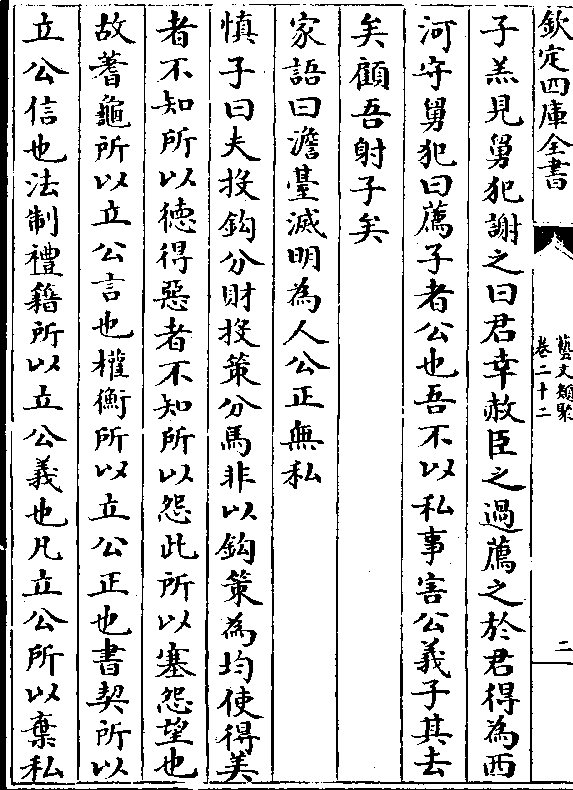 欽定四庫全書
藝文類聚
卷二十二
二
子羔見舅犯謝之曰君幸赦臣之過薦之於君得為西
河守舅犯曰薦子者公也吾不以私事害公義子其去
矣顧吾射子矣
家語曰澹臺滅明為人公正無私
慎子曰夫投鈎分財投策分馬非以鈎策為均使得美
者不知所以德得惡者不知所以怨此所以塞怨望也
故蓍龜所以立公言也權衡所以立公正也書契所以
立公信也法制禮籍所以立公義也凡立公所以棄私